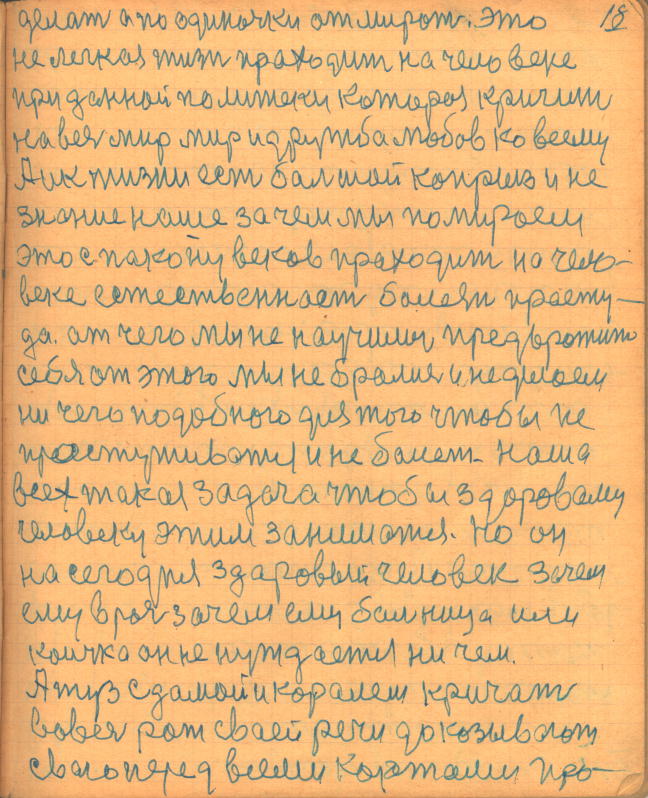 делат а по одиночки отмират. Это 18
не легкоя жизн праходит на человеке
при данной политеки котороя кричит
на вея мир мир и дружба любов ко всему
А ик жизни ест балшой капрыз и не
знание наше зачем мы помироем
это спаконну веков праходит на чело-
веке естественноет болезн прасту-
да. от чего мы не научимы предвротит
себя от этого мы не бралися и не дилоем
ни чего подобного для того чтобы не
прастуживатя и не болет. Наша
всех такая задача чтобы здоровому
человеку этим заниматя. Но он
на сегодня здаровый человек зачем
ему врач зачем ему балница или
коичка он не нуждается ни чем.
А туз с дамой и королем кричат
во вея рот сваей речи доказывают
сваю перед всеми картами про-